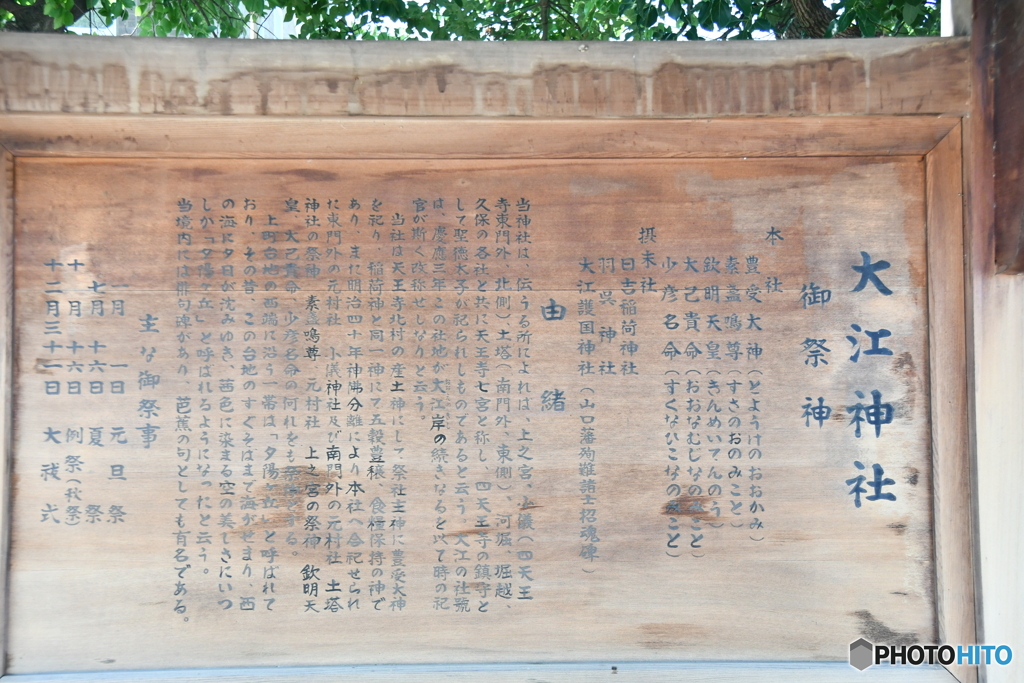 大江神社
御祭神
本社
豊受大神（とようけのおおかみ）
素盞鳴尊（すさのおのみこと）
欽明天皇（きんめいてんのう）
大己貴命（おおなむじなのみこと）
少彦名命（すくなひこなのみこと）
摂末社
日吉稲荷神社
羽呉神社
大江護国神社（山口藩殉難諸士招魂碑）
由緒
当神社は、伝うる所によれば、上之宮、小儀（四天王
寺東門外、北側）、土塔（南門外、東側）、河堀、堀越、
久保の各社と共に天王寺七宮と称し、四天王寺の鎮守と
して聖徳太子が祀られしものであると云う。大江の社号
は、慶應三年この社地が大江岸の続きなるを以て時の祀
官が斯く改称せしなりと云う。
当社は天王寺北村の産土神にして祭社主神に豊受大神
を祀り、稲荷神と同一神にて五穀豊穣、食糧保持の神で
あり、また明治四十年神佛分離により本社へ合祀せられ
た東門外の元村社　小儀神社及び南門外の元村社　土塔
神社の祭神　素盞鳴尊、元村社　上之宮の祭神　欽明天
皇、大己貴命、少彦名命の何れをも祭
上町台地の西端に沿う一帯は「夕陽ヶ丘」と呼ばれて
おり、その昔、この台地のすぐそばまで海がせまり、西
の海に夕日が沈みゆき、茜色に染まる空の美しさにいつ
しか「夕陽ヶ丘」と呼ばれるようになったと云う。
当境内には俳句碑があり、芭蕉の句としても有名である。
主な御祭事
一月一日　元旦祭
七月十六日　夏祭
十月十六日　例祭（秋祭）
十二月三十一日　大祓式
PHOTOHITO